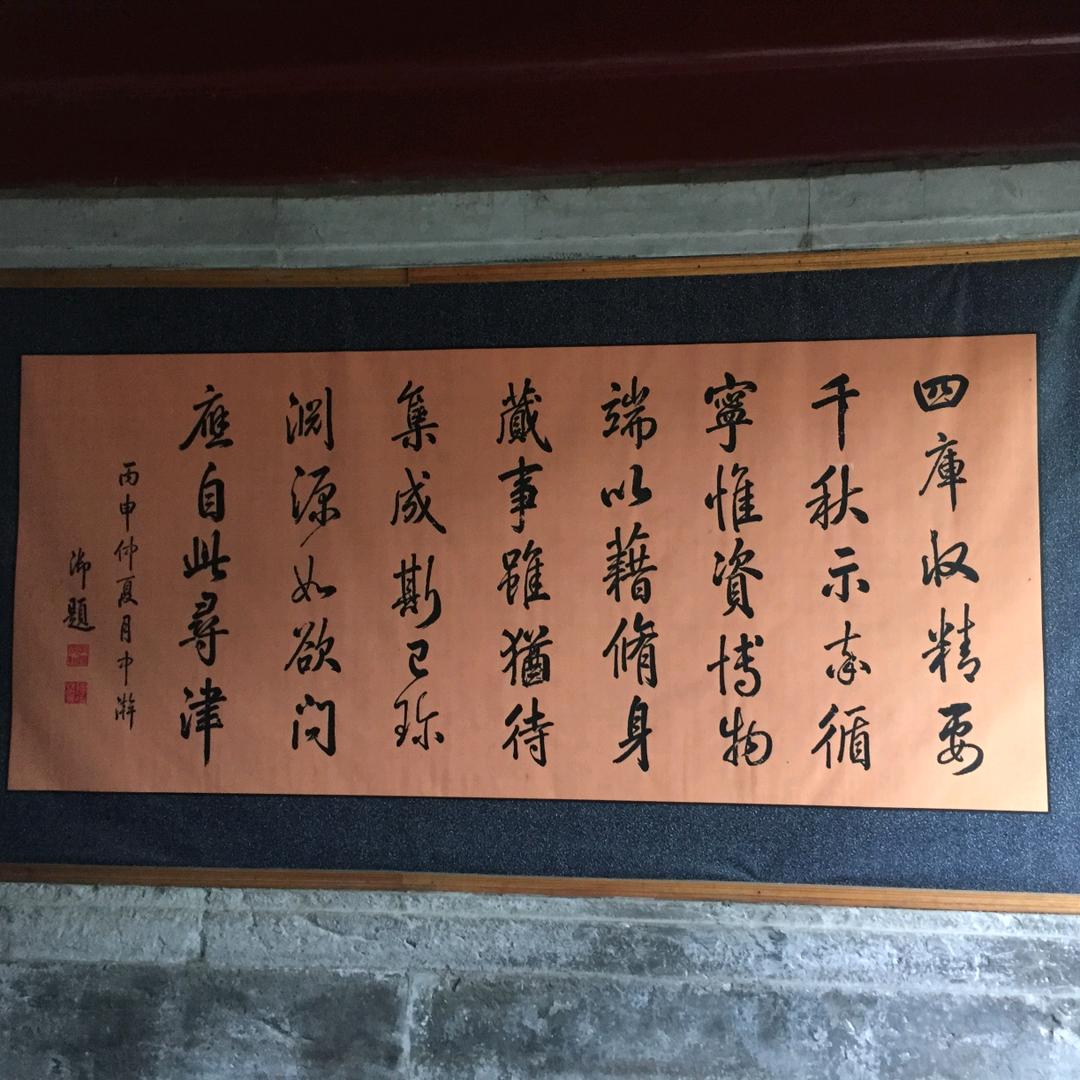 四庫收精要
千秋示率循
寧惟資博物
端以藉脩身
蕆事雖猶待
集成斯已珎
淵源如欲問
應自此尋津
丙申仲夏月中澣
御題